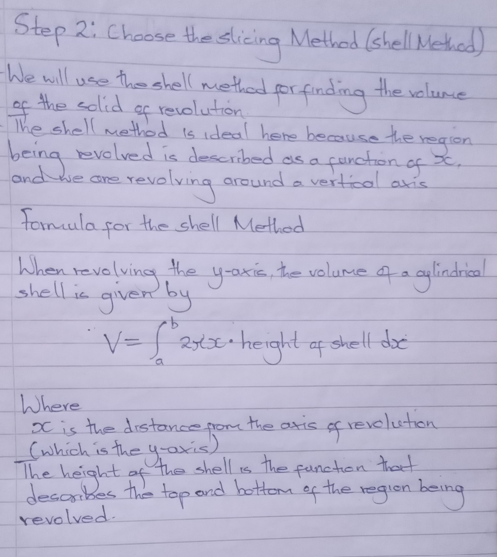 Step 2: Choose the slicing Method (shell Method)
We will use the shell method for finding the volume
of the solid of revolution
The shell method is ideal here because the region
being revolved is described as a function of x,
and we are revolving around a vertical axis
Formula for the shell Method
When revolving the y-axis, the volume of a cylindrical
shell is given by
V = ∫_a^b 2πx · height of shell dx
Where
x is the distance from the axis of revolution
(which is the y-axis)
The height of the shell is the function that
describes the top and bottom of the region being
revolved.